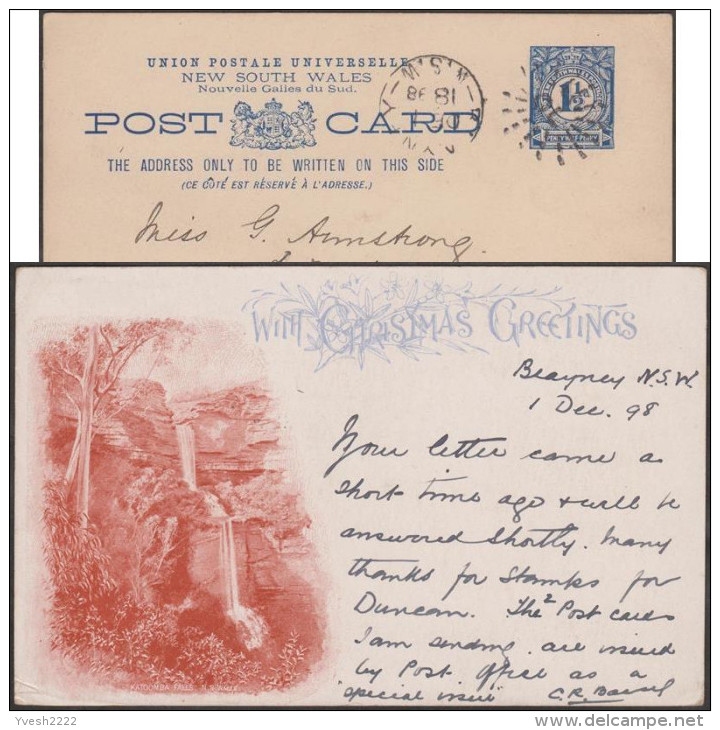 UNION POSTALE UNIVERSELLE
NEW SOUTH WALES
Nouvelle Galles du Sud.
POST CARD
THE ADDRESS ONLY TO BE WRITTEN ON THIS SIDE
(CE CÔTÉ EST RÉSERVÉ À L'ADRESSE.)
1½
Miss G. Armstrong.
WITH CHRISTMAS GREETINGS
Blayney N.S.W.
1 Dec. 98
Your letter came a
short time ago & will be
answered shortly. Many
thanks for stamps for
Duncan. The 2 Post cards
I am sending are issued
by Post Office as a
"special issue" C.R.
KATOOMBA FALLS N.S. WALES
Yvesh2222